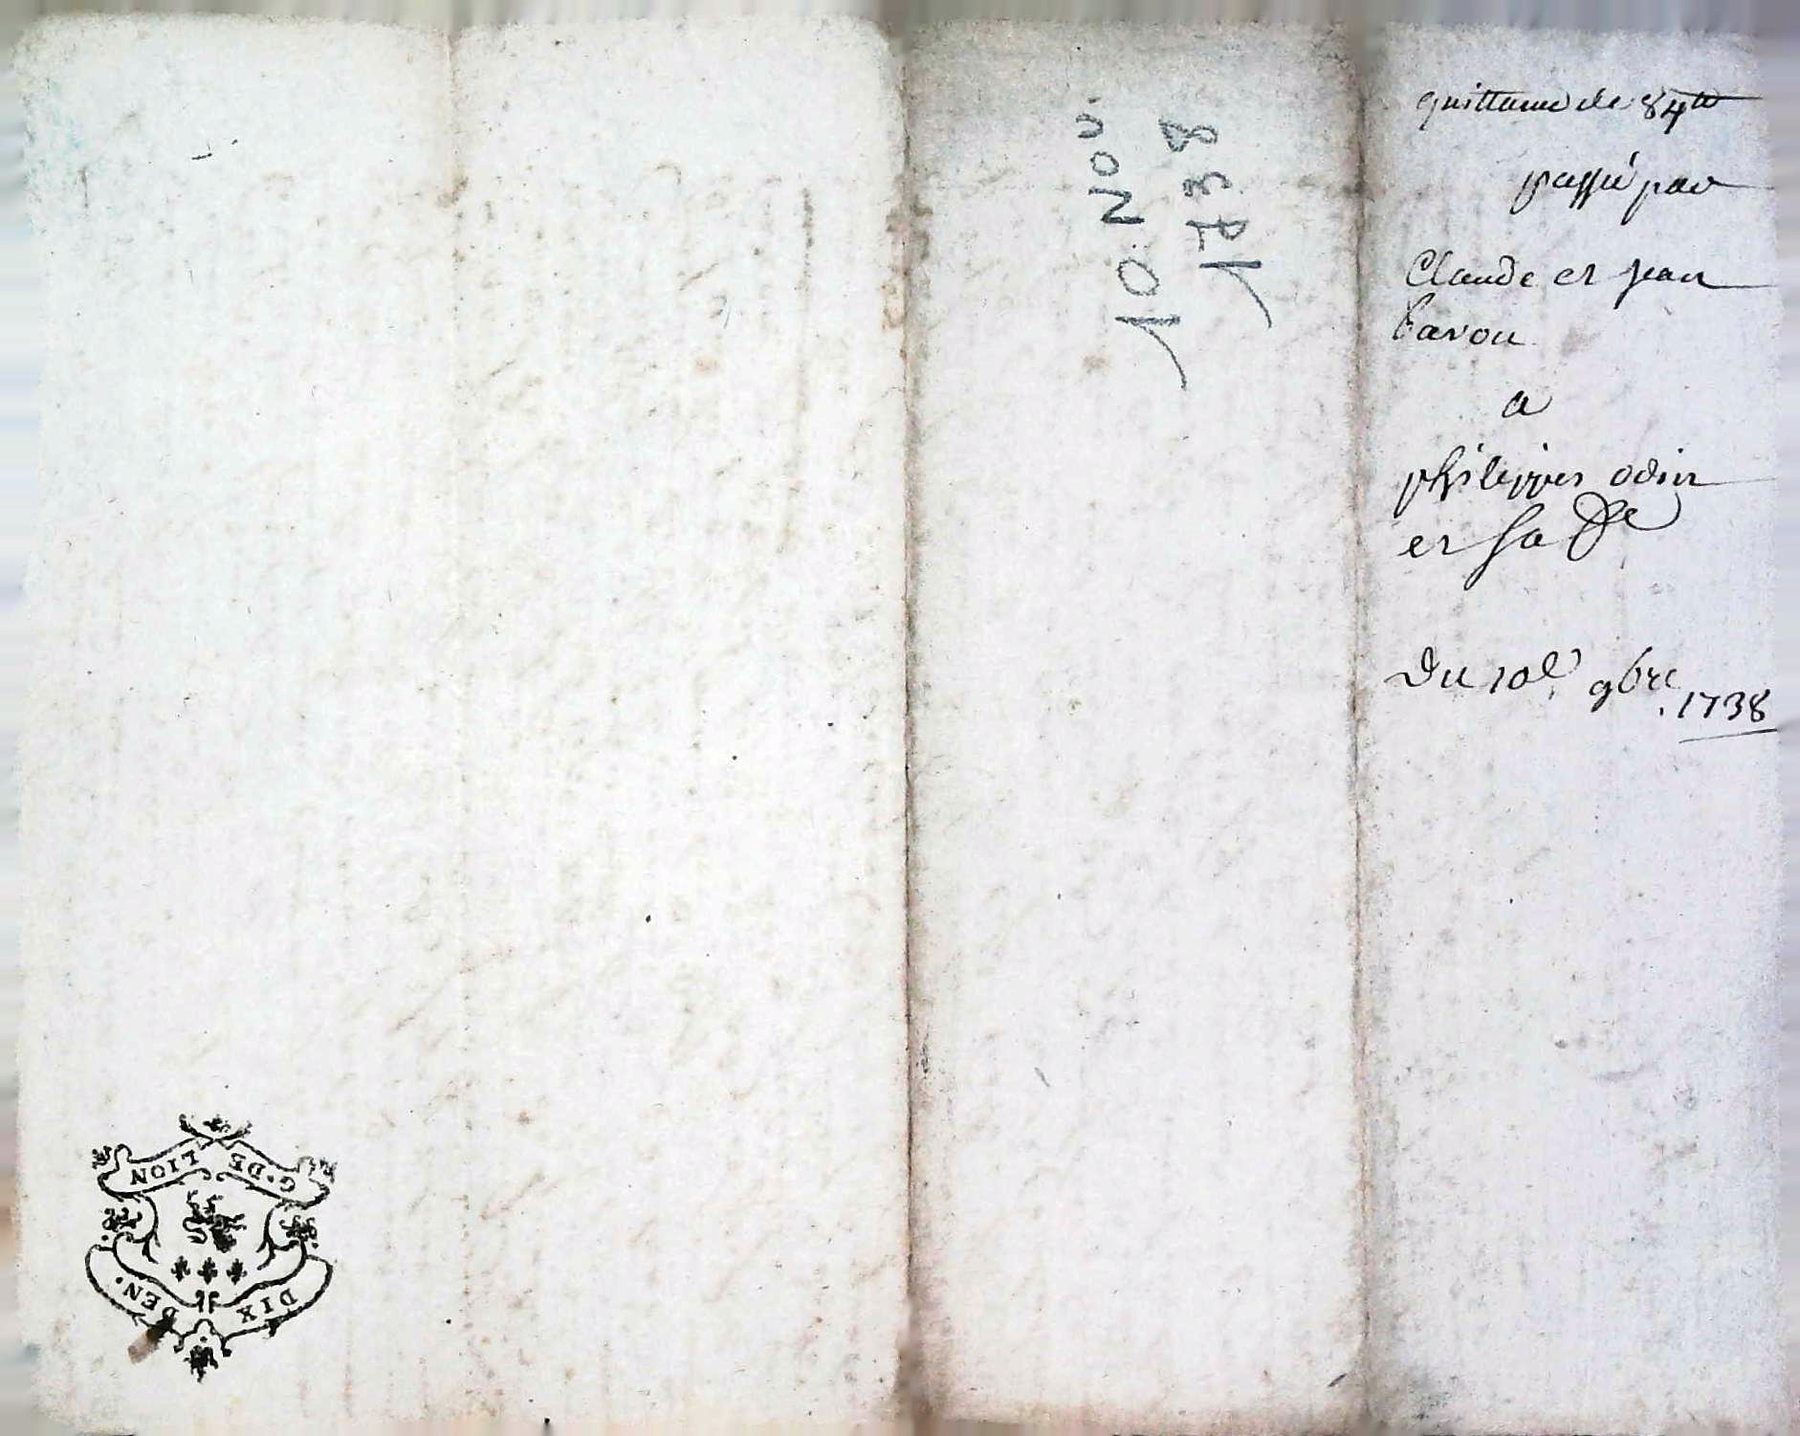 quittance de 84ᵗᵗ
passé par
Claude et jean
bavou
a
philippes odin
et sa fe
Du 10e 9bre 1738
10 Nov.
1738
G. DE LION
DIX DEN.